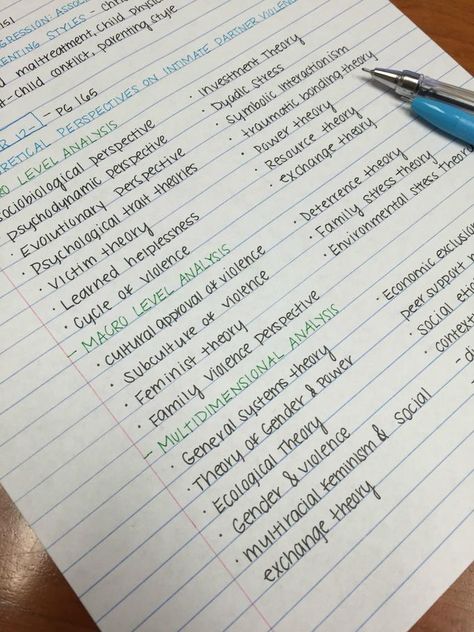 151
GRESSION: ASSOC
ENTING STYLES - chr
d maltreatment, child physic
t-child conflict, parenting style
R 12- - PG 165
RETICAL PERSPECTIVES ON INTIMATE PARTNER VIOLENC
RO LEVEL ANALYSIS
sociobiological perspective
psychodynamic perspective
Evolutionary perspective
· Psychological trait theories
· Victim theory
· Learned helplessness
· Cycle of violence
· investment Theory
· Dyadic stress
· Symbolic interactionism
· traumatic bonding theory
· Power theory
· Resource theory
· exchange theory
- MACRO LEVEL ANALYSIS
· Cultural approval of violence
· Subculture of violence
· Feminist theory
· Family violence perspective
· Deterrence theory
· Family stress theory
· Environmental stress Theor
- MULTIDIMENSIONAL ANALYSIS
· General systems theory
· Theory of Gender & Power
· Ecological Theory
· Gender & violence
· multiracial feminism & social
exchange theory
· Economic exclusion
peer support m
· social etio
· context